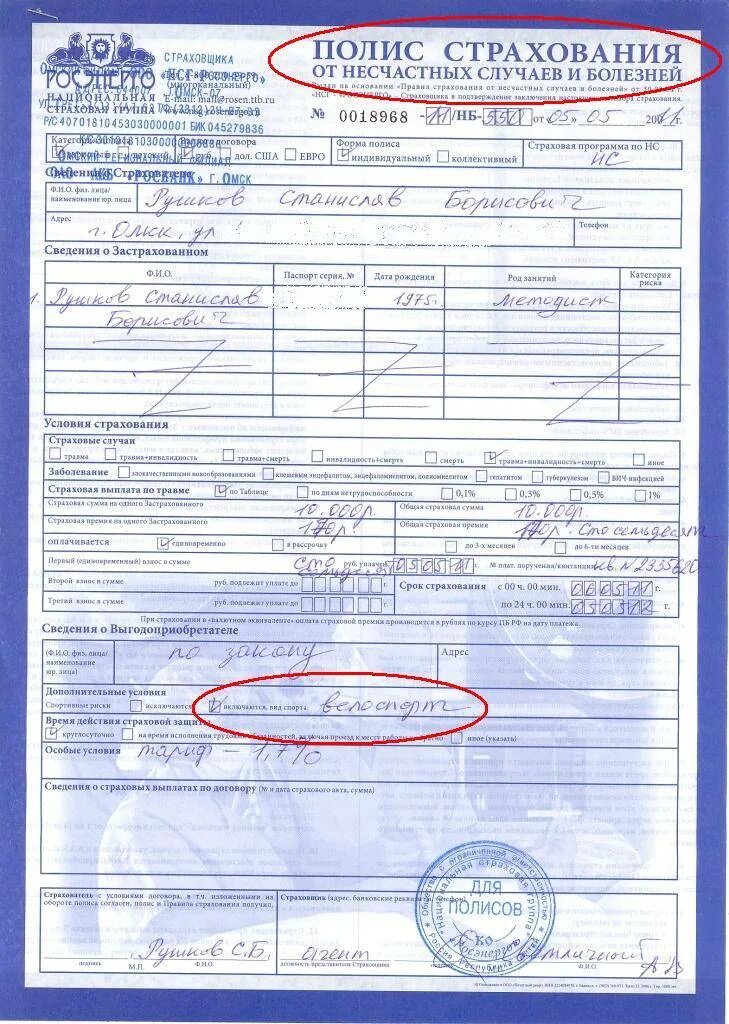 РОСЭНЕРГО
НАЦИОНАЛЬНАЯ
СТРАХОВАЯ ГРУППА
СТРАХОВЩИКА
"НСГ-РОСЭНЕРГО"
(многоканальный)
E-mail: mail@rosen.ttb.ru
Р/С 40701810453030000001 БИК 045279836
ОМСКИЙ РЕГИОНАЛЬНЫЙ ФИЛИАЛ
ОАО АКБ "РОСБАНК" г. ОМСК
ПОЛИС СТРАХОВАНИЯ
ОТ НЕСЧАСТНЫХ СЛУЧАЕВ И БОЛЕЗНЕЙ
№ 0018968 -11/НБ-550 от 05 05 2011г.
дол. США ЕВРО
Форма полиса
индивидуальный коллективный
Страховая программа по НС
НС
Сведения о Страхователе
Ф.И.О. физ. лица/
наименование юр. лица
Рушков Станислав Борисович
Адрес
г. Омск, ул
Телефон
Сведения о Застрахованном
Ф.И.О. Паспорт серия, № Дата рождения Род занятий Категория
риска
1. Рушков Станислав 1975г. методист
Борисович
Условия страхования
Страховые случаи
травма травма+инвалидность травма+смерть инвалидность+смерть смерть травма+инвалидность+смерть иное
Заболевание злокачественными новообразованиями клещевым энцефалитом, энцефаломиелитом, полиомиелитом гепатитом туберкулезом ВИЧ-инфекцией
Страховая выплата по травме по Таблице по дням нетрудоспособности 0,1% 0,3% 0,5% 1%
Страховая сумма на одного Застрахованного 10.000р. Общая страховая сумма 10.000р.
Страховая премия на одного Застрахованного 170р. Общая страховая премия 170р. Сто семьдесят
оплачивается единовременно в рассрочку до 3-х месяцев до 6-ти месяцев
Первый (единовременный) взнос в сумме сто семьдесят руб. уплачен 050511 г. № плат. поручения/квитанции кв. N 2335620
Второй взнос в сумме руб. подлежит уплате до г.
Третий взнос в сумме руб. подлежит уплате до г.
Срок страхования с 00 ч. 00 мин. 060511 г.
по 24 ч. 00 мин. 050512 г.
При страховании в «валютном эквиваленте» оплата страховой премии производится в рублях по курсу ЦБ РФ на дату платежа.
Сведения о Выгодоприобретателе
(Ф.И.О. физ. лица/
наименование
юр. лица)
по закону
Адрес
Дополнительные условия
Спортивные риски исключаются включаются, вид спорта: велоспорт
Время действия страховой защиты
круглосуточно на время исполнения трудовых обязанностей, включая проезд к месту работы и обратно иное (указать)
Особые условия тариф - 1,7%
Сведения о страховых выплатах по договору (№ и дата страхового акта, сумма)
Страхователь с условиями договора, в т.ч. изложенными на
обороте полиса согласен, полис и Правила страхования получил.
Страховщик (адрес, банковские реквизиты
Рушков С.Б.
подпись Ф.И.О.
М.П.
агент
должность представителя Страховщика
подпись
Ф.И.О.
Общество с ограниченной ответственностью
Национальная страховая группа
ДЛЯ
ПОЛИСОВ
"Росэнерго"